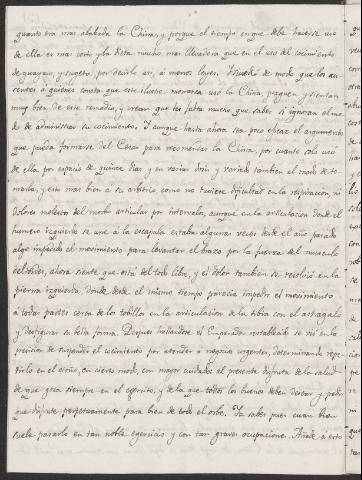 quanto era mas alabada la China, y porque el tiempo en que debe hacerse uso
de ella es mas corto y la dieta mucho mas llevadera que en el uso del cocimiento
de guayaco, y sugeta, por decirlo asi, á menos leyes. Sucedió de modo que los au-
sentes á quienes consta que este ilustre monarca usó la China, juzguen y sientan
muy bien de este remedio, y crean que les falta mucho que saber si ignoran el mo-
do de administrar su cocimiento. Y aunque hasta ahora sea poco eficaz el argumento
que pueda formarse del Cesar para recomendar la China, por cuanto solo usó
de ella por espacio de quince dias y en varias dosis y variado tambien el modo de to-
marla, y esto mas bien á su arbitrio como no tuviese dificultad en la respiracion, ni
dolores molestos del morbo articular por intervalos, aunque en la articulacion donde el
humero izquierdo se une á la escapula estaba algunas veces desde el año pasado
algo impedido el movimiento para levantar el brazo por la fuerza del musculo
deltoides, ahora siente que está del todo libre, y el dolor tambien se resolvió en la
pierna izquierda donde desde el mismo tiempo parecia impedir el movimiento
á todas partes cerca de los tobillos en la articulacion de la tibia con el astragalo
y desfigurar su bella forma. Despues hallandose el Emperador restablecido se vió en la
precision de suspender el cocimiento por atender á negocios urgentes, determinando repe-
tirlo en el otoño, en cierto modo, con mayor cuidado al presente disfruta de la salud
de que goza siempre en el egercito, y de la que todos los buenos deben desear y pedir
que disfrute perpetuamente para bien de todo el orbe. Ya sabes pues cuan bien
suele pasarlo en tan noble egercicio y con tan graves ocupaciones. Añade á esto